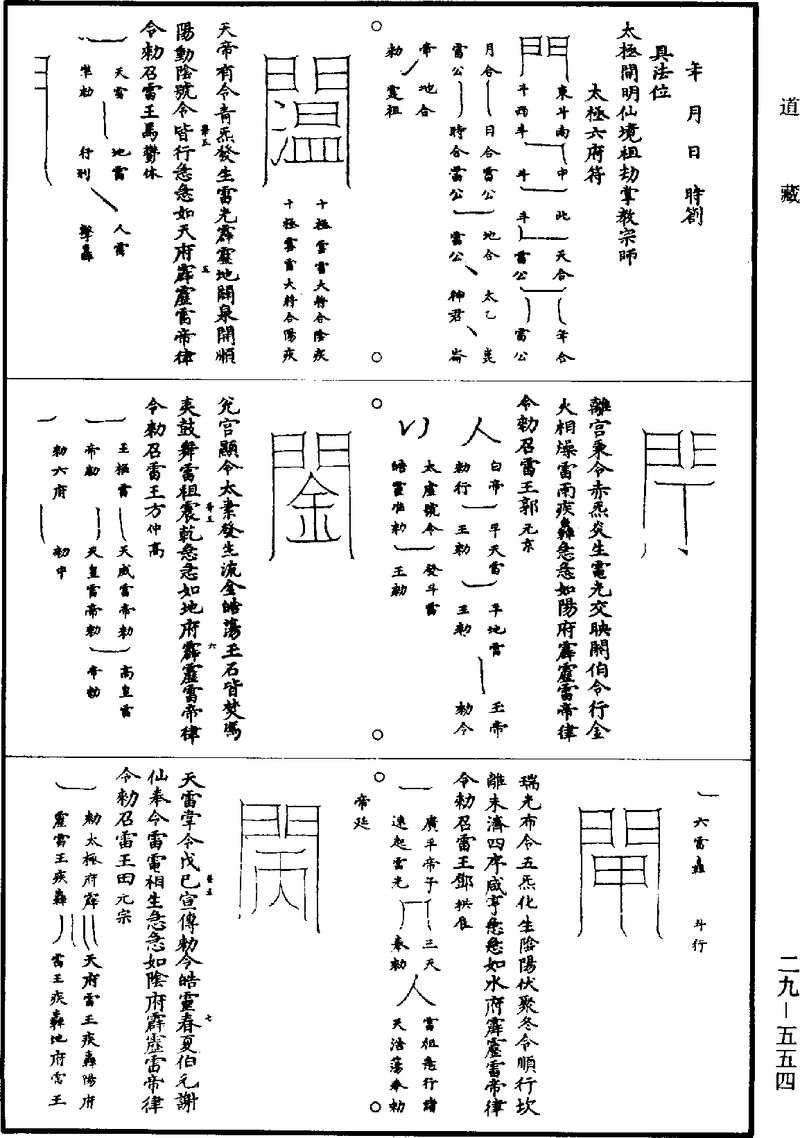 道藏
年月日時劄
具法位
太極開明仙境祖劫掌教宗師
太極六府符
門
東斗南 中 北 天合 年合
斗西斗 斗 斗 雷公 雷公
月合 日合雷公 地合 太乙
雷公 時合雷公 雷公 神君
帝 地合
勅 震祖
閫溫
十極雷雷大將合陰疾
十極雲雷大將合陽疾
天帝有令青炁發生雷光霹靂地關泉開順
陽動陰號令皆行急急如天府霹靂雷帝律
令勅召雷王馬鬱休
天雷 地雷 人雷
準勅 行刑 擊轟
離宮秉令赤炁炎生電光交映關伯令行金
火相燥雷雨疾轟急急如陽府霹靂雷帝律
令勅召雷王郭元京
人
白帝 斗天雷 斗地雷 王帝
勅行 王勅 王勅 勅令
太虛號令 發斗雷
皓靈准勅 王勅
金
兊宮顯令太素發生流金皓蕩玉石皆焚馮
夷鼓舞雷祖震乾急急如地府霹靂雷帝律
令勅召雷王方仲高
玉樞雷 天威雷帝勅 高皇雷
帝勅 天皇雷帝勅 帝勅
勅六府 勅中
六雷轟 斗行
瑞光布令五炁化生陰陽伏聚冬令順行坎
離未濟四序咸亨急急如水府霹靂雷帝律
令勅召雷王鄧拱辰
廣平帝子 三天 雷祖急行諸
速起雷光 奉勅 人 天浩蕩奉勅
帝廷
天雷掌令戊巳宣傳勅令皓靈春夏伯元謝
仙奉令雷電相生急急如陰府霹靂雷帝律
令勅召雷王田元宗
勅太極府霹 天府雷王疾轟陽府
靂雷王疾轟 雷王疾轟地府雷王
二九—五五四